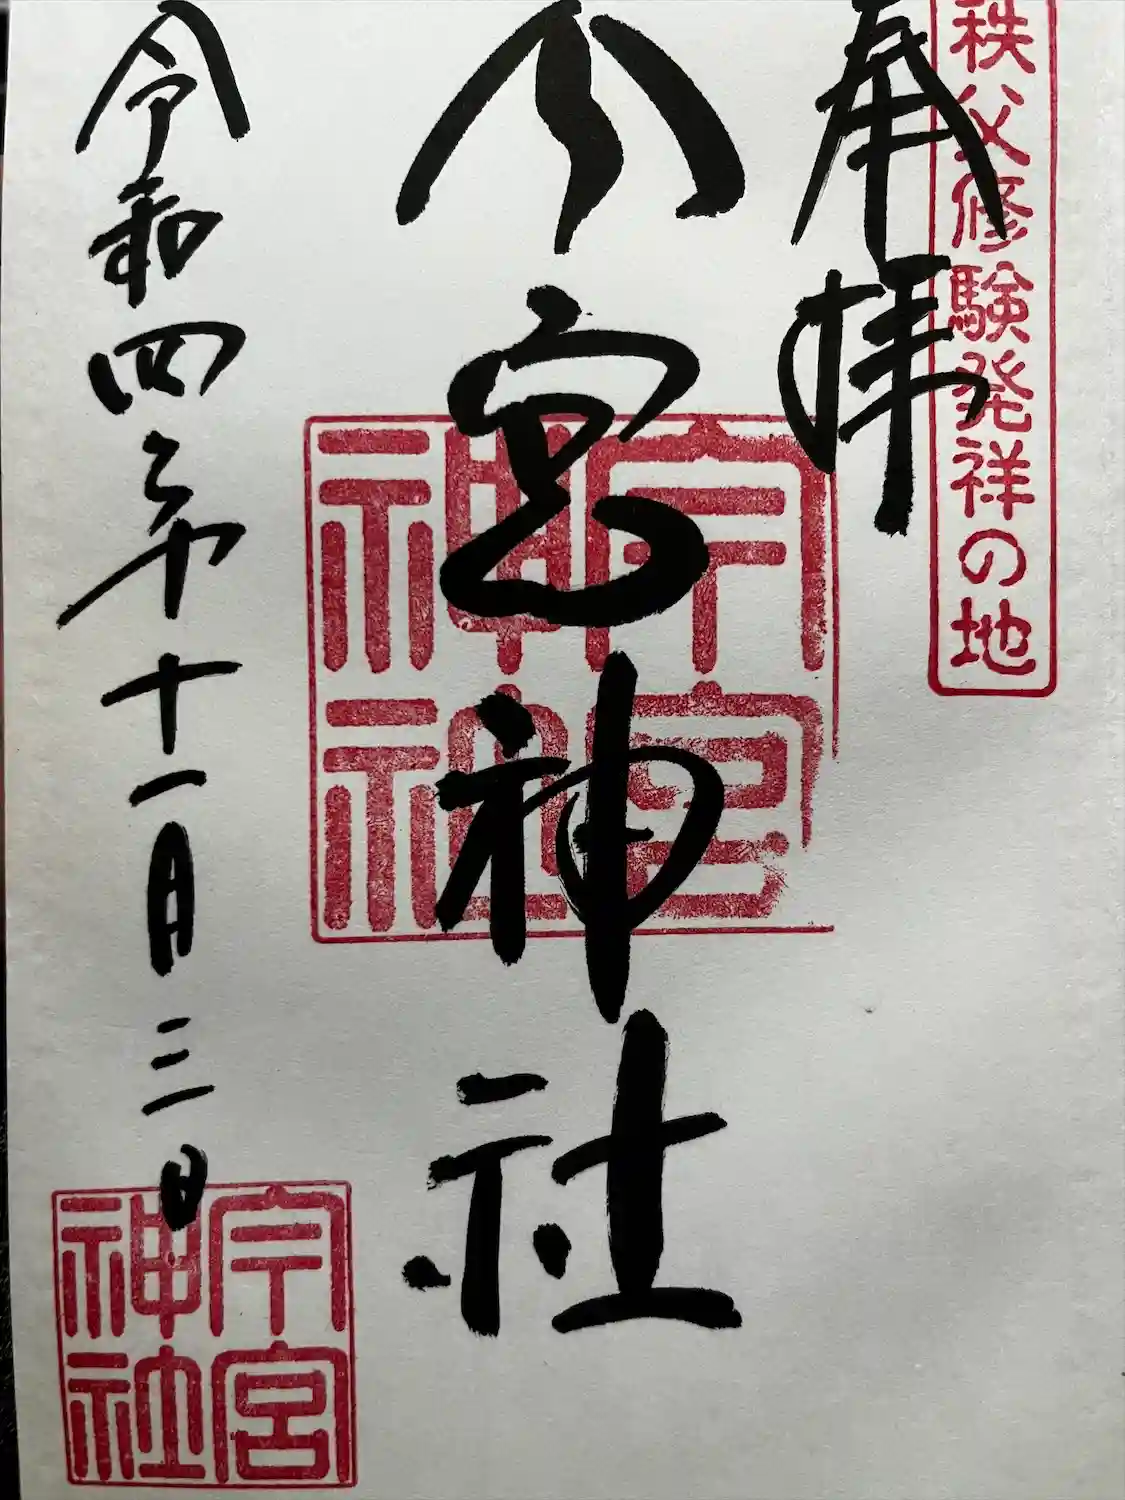 秩父修験発祥の地
奉拝
今宮神社
今宮神社
令和四年十一月三日
今宮神社